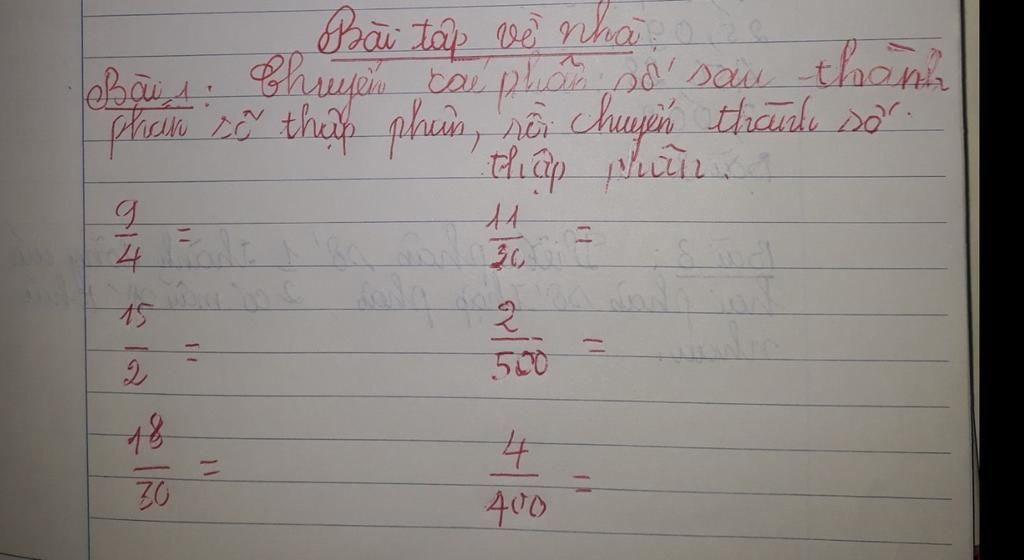 Bài tập về nhà:
Bài 1: Chuyển các phân số sau thành
phân số thập phân, rồi chuyển thành số
thập phân.
9/4 = 11/30 =
15/2 = 2/500 =
18/30 = 4/400 =